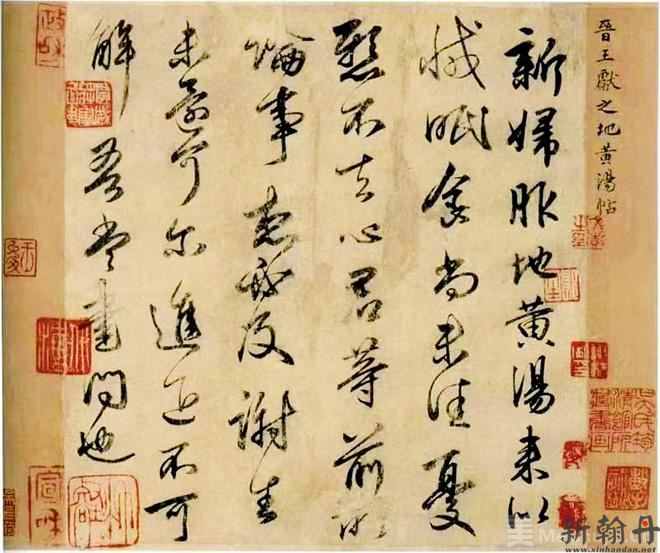 晉王獻之地黃湯帖
新婦服地黃湯來似
減眠食尚未佳憂
懸不去心君等前所
論事想必及謝生
未還何尔進退不可
解吾當書問也
政和
宣和
新翰丹
www.xinhandan.net